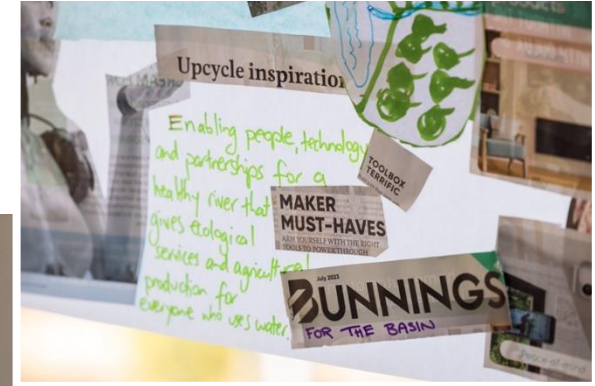 Upcycle inspiration
Enabling people, technology
and partnerships for a
healthy river that
gives ecological
services and agricultural
production for
everyone who uses water.
TOOLBOX
TERRIFIC
MAKER
MUST-HAVES
ARM YOURSELF WITH THE RIGHT
TOOLS TO POWER THROUGH
July 2023
BUNNINGS
FOR THE BASIN
Peace-of-mind